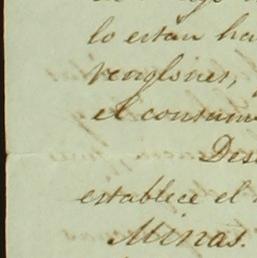 lo estan ha
renglones,
el consum
Des
establece el
Minas.